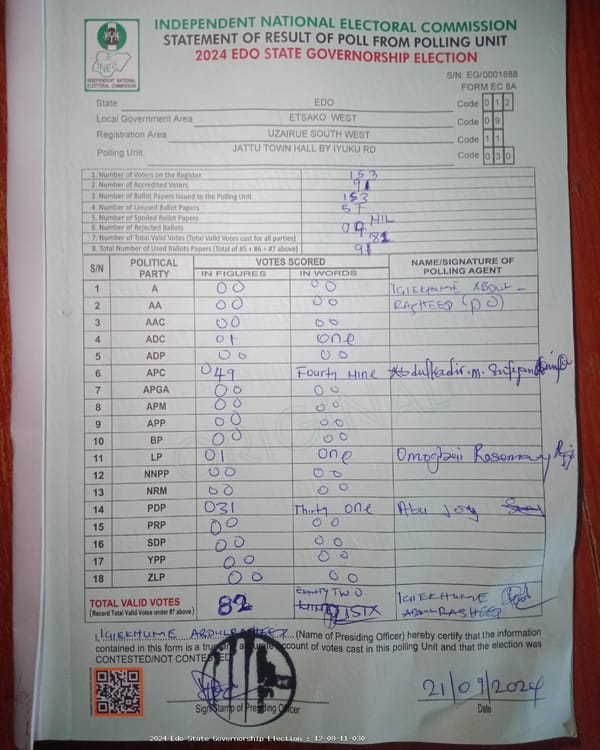 INDEPENDENT NATIONAL ELECTORAL COMMISSION
STATEMENT OF RESULT OF POLL FROM POLLING UNIT
2024 EDO STATE GOVERNORSHIP ELECTION
INDEPENDENT NATIONAL ELECTORAL COMMISSION
S/N: EG/0001888
FORM EC 8A
State EDO Code 0 1 2
Local Government Area ETSAKO WEST Code 0 9
Registration Area UZAIRUE SOUTH WEST Code 1 1
Polling Unit JATTU TOWN HALL BY IYUKU RD Code 0 3 0
1. Number of Voters on the Register 153
2. Number of Accredited Voters 91
3. Number of Ballot Papers Issued to the Polling Unit 153
4. Number of Unused Ballot Papers
5. Number of Spoiled Ballot Papers NIL
6. Number of Rejected Ballots 09
7. Number of Total Valid Votes (Total Valid Votes cast for all parties) 82
8. Total Number of Used Ballots Papers (Total of #5 + #6 + #7 above) 91
S/N POLITICAL PARTY VOTES SCORED NAME/SIGNATURE OF POLLING AGENT
IN FIGURES IN WORDS
1 A 00 00 IGIEKHUME ABDUL-
2 AA 00 00 RASHEED (PO)
3 AAC 00 00
4 ADC 01 one
5 ADP 00 00
6 APC 049 Fourty Nine
7 APGA 00 00
8 APM 00 00
9 APP 00 00
10 BP 00 00
11 LP 01 one Rosemary
12 NNPP 00 00
13 NRM 00 00
14 PDP 031 Thirty one Abu
15 PRP 00 00
16 SDP 00 00
17 YPP 00 00
18 ZLP 00 00
TOTAL VALID VOTES
(Record Total Valid Votes under #7 above) 82 EIGHTY TWO IGIEKHUME ABDULRASHEED
I, IGIEKHUME ABDULRASHEED (Name of Presiding Officer) hereby certify that the information
contained in this form is a true and accurate account of votes cast in this polling Unit and that the election was
CONTESTED/NOT CONTESTED
21/09/2024
Sign/Stamp of Presiding Officer Date
2024 Edo State Governorship Election : 12-09-11-030